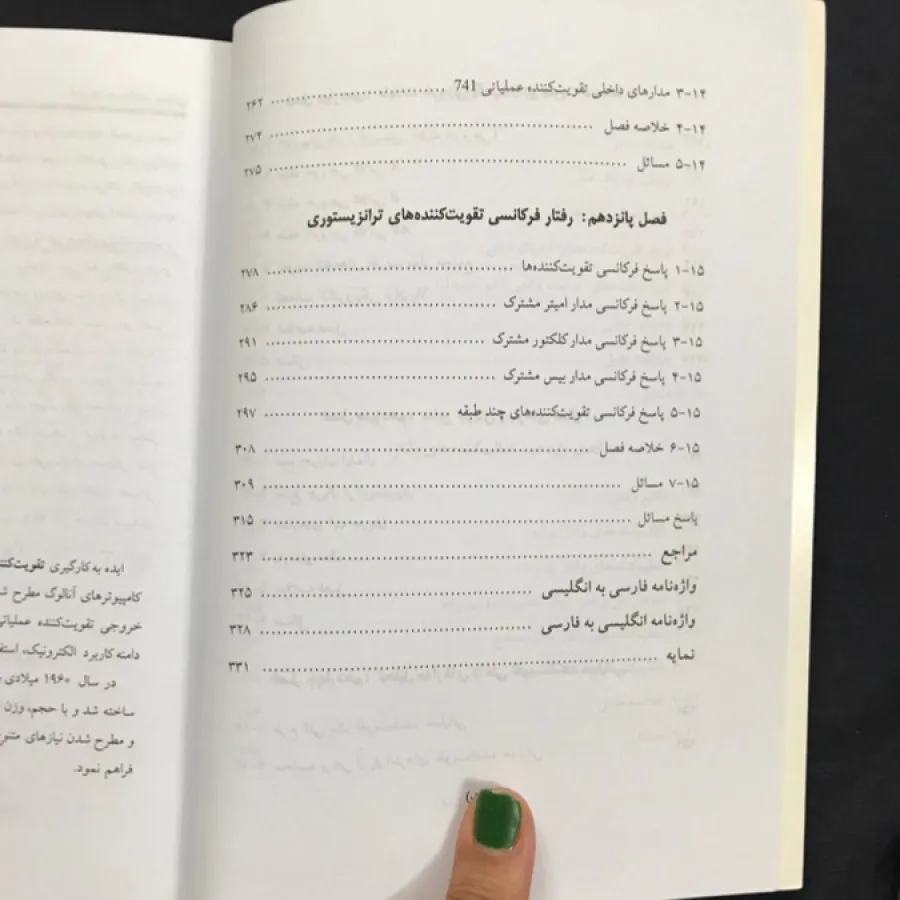 ۳-۱۴ مدارهای داخلی تقویت‌کننده عملیاتی 741 ........ ۲۶۲
۴-۱۴ خلاصه فصل ........ ۲۷۴
۵-۱۴ مسائل ........ ۲۷۵
فصل پانزدهم: رفتار فرکانسی تقویت‌کننده‌های ترانزیستوری
۱-۱۵ پاسخ فرکانسی تقویت‌کننده‌ها ........ ۲۷۸
۲-۱۵ پاسخ فرکانسی مدار امیتر مشترک ........ ۲۸۶
۳-۱۵ پاسخ فرکانسی مدار کلکتور مشترک ........ ۲۹۱
۴-۱۵ پاسخ فرکانسی مدار بیس مشترک ........ ۲۹۵
۵-۱۵ پاسخ فرکانسی تقویت‌کننده‌های چند طبقه ........ ۲۹۷
۶-۱۵ خلاصه فصل ........ ۳۰۸
۷-۱۵ مسائل ........ ۳۰۹
پاسخ مسائل ........ ۳۱۵
مراجع ........ ۳۲۳
واژه‌نامه فارسی به انگلیسی ........ ۳۲۵
واژه‌نامه انگلیسی به فارسی ........ ۳۲۸
نمایه ........ ۳۳۱
ایده به‌کارگیری
کامپیوترهای آنالوگ مطرح
خروجی تقویت‌کننده
دامنه کاربرد الکترونیک،
در سال ۱۹۶۰ میلادی
ساخته شد و با حجم، وزن
و مطرح شدن نیازهای
فراهم نمود.